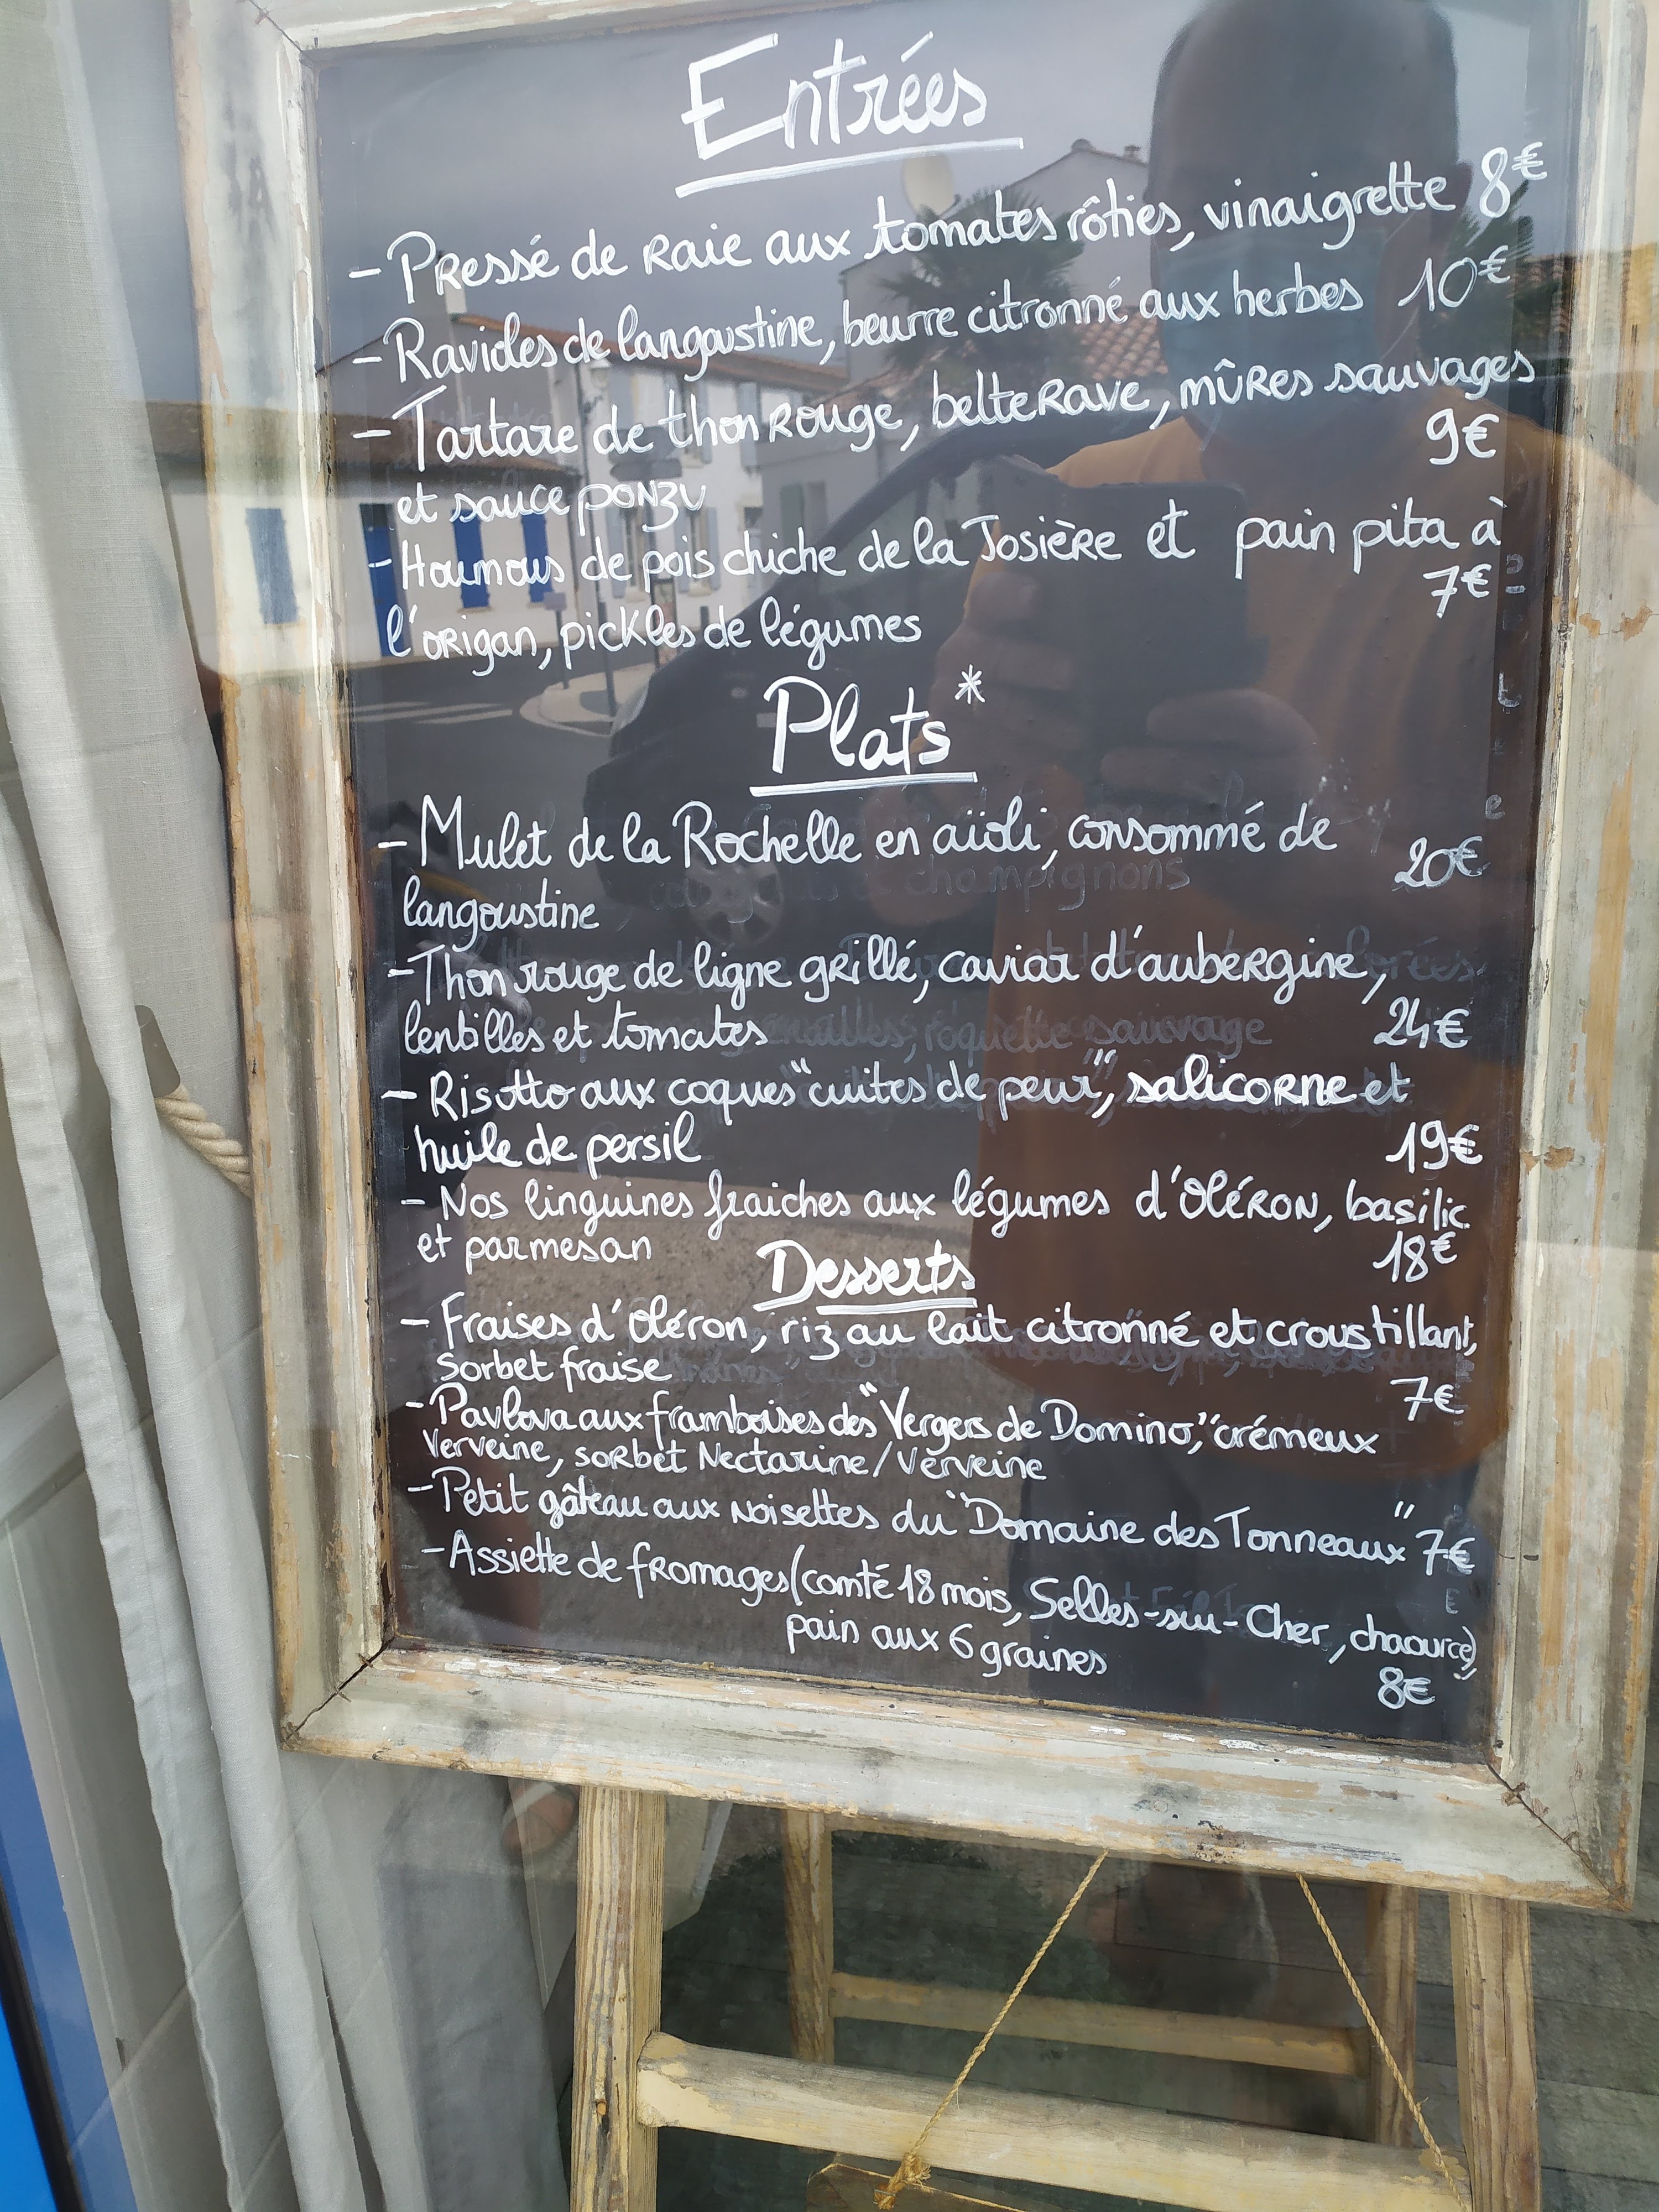 Entrées
- Pressé de raie aux tomates rôties, vinaigrette 8€
- Ravioles de langoustine, beurre citronné aux herbes 10€
- Tartare de thon rouge, betterave, mûres sauvages
9€
et sauce ponzu
- Houmous de pois chiche de la Josière et pain pita à
7€
l'origan, pickles de légumes
Plats*
- Mulet de la Rochelle en aïoli, consommé de
20€
langoustine
- Thon rouge de ligne grillé, caviar d'aubergine,
lentilles et tomates 24€
- Risotto aux coques "cuites de peur", salicorne et
huile de persil 19€
- Nos linguines fraiches aux légumes d'Oléron, basilic
et parmesan 18€
Desserts
- Fraises d'Oléron, riz au lait citronné et croustillant,
sorbet fraise 7€
- Pavlova aux framboises des "Vergers de Domino," crémeux
Verveine, sorbet Nectarine/Verveine
- Petit gâteau aux noisettes du "Domaine des Tonneaux" 7€
- Assiette de fromages (comté 18 mois, Selles-sur-Cher, chaource)
pain aux 6 graines
8€